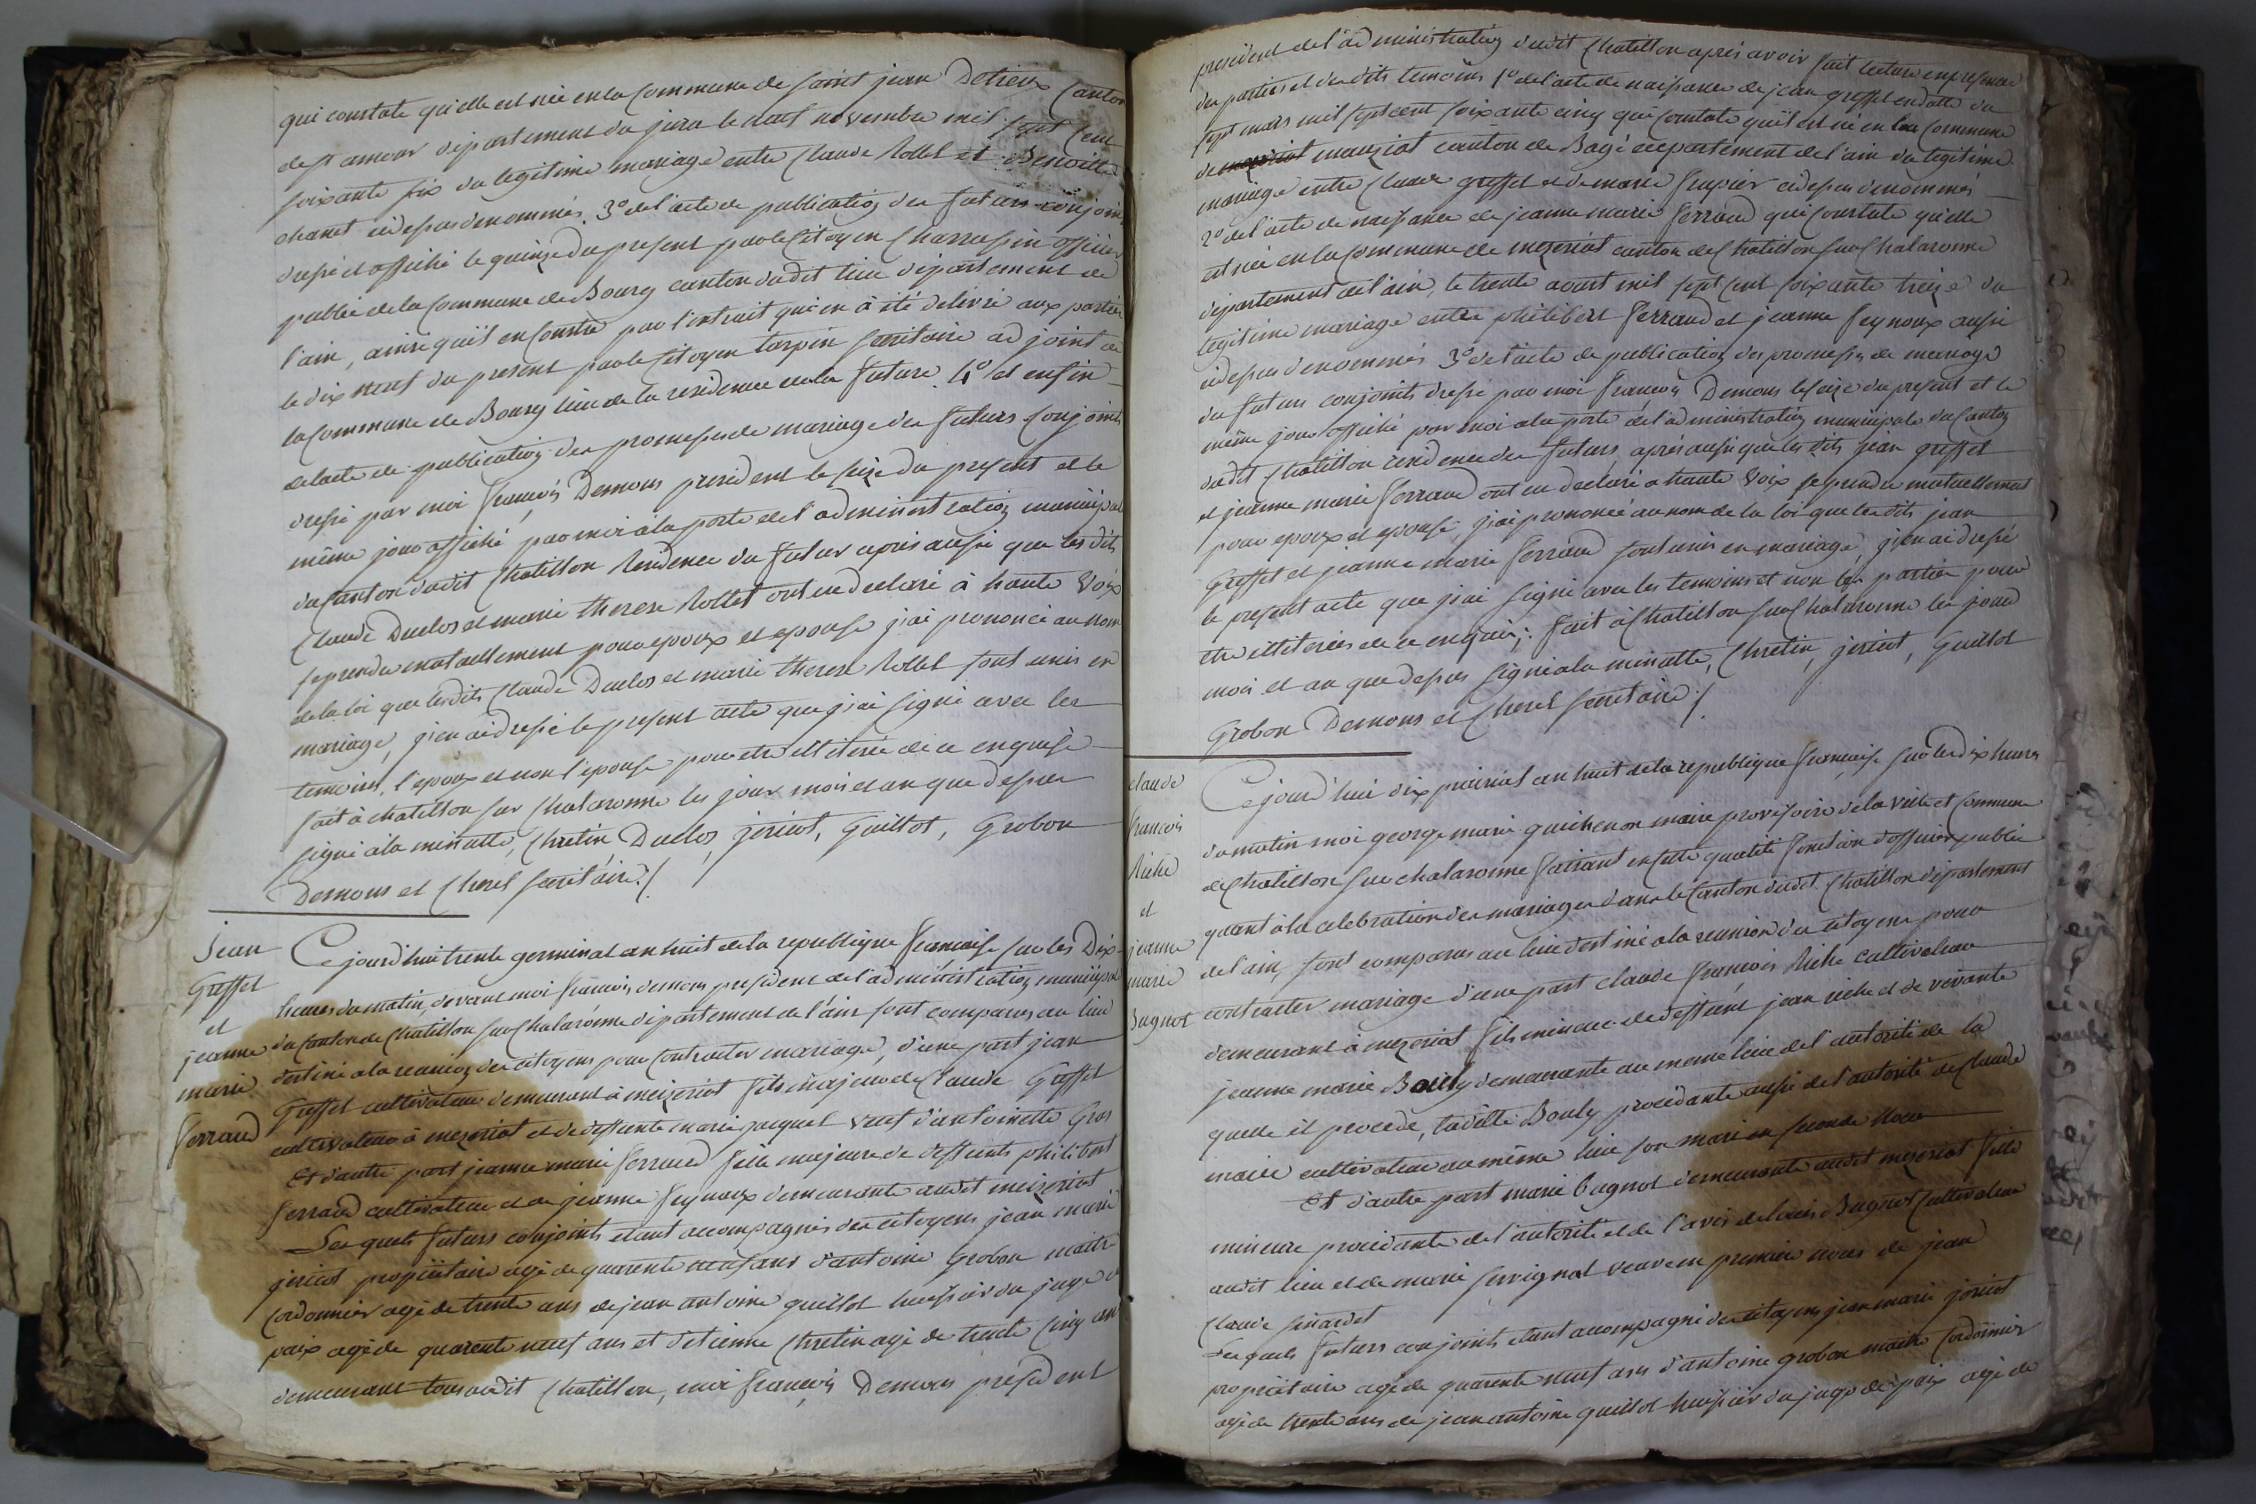 qui constate qu'elle est née en la commune de saint jean Detreux Canton
de st amour département du jura le neuf novembre mil sept cent
soixante six du legitime mariage entre Claude Rollet et Benoitte
chanet cidessus denommés. 3° de l'acte de publication des futurs conjoints
dressé et affiché le quinze du present par le Citoyen Charrassin officier
public de la Commune de Bourg canton dudit lieu département de
l'ain, ainsi qu'il en conste par l'extrait qui en à été delivré aux parties
le dix neuf du present par le Citoyen tarpin secrétaire adjoint de
la Commune de Bourg lieu de la residence de la future. 4° et enfin
de l'acte de publication des promesses de mariage des futurs conjoints
dressé par moi françois Demons president le seize du present et le
même jour affiché par moi à la porte de l'administration municipal
du Canton dudit Chatillon Residence du futur après aussi que les dits
Claude Duclos et marie therese Rollet ont eu declaré à haute Voix
se prendre mutuellement pour epoux et epouse j'ai prononcé au nom
de la loi que lesdits Claude Duclos et marie therese Rollet sont unis en
mariage, j'en ai dressé le present acte que j'ai signé avec les
temoins, l'epoux et non l'epouse pour etre illiterée de ce enquise
fait à chatillon sur Chalaronne les jour mois et an que dessus
signé à la minutte, Chretin Duclos, jericot, Guillot, Grobon
Demons et Cherel secrétaire./.
Jean
Greffet
et
jeanne
marie
ferraud
Cejourd'hui trente germinal an huit de la republique francaise sur les Dix
heures du matin, devant moi francois demons president de l'administration municipal
du Canton de Chatillon sur Chalaronne département de l'ain sont comparus au lieu
destiné a la reunion des citoyens pour contracter mariage, d'une part jean
Greffet cultivateur demeurant à mezeriat fils majeur de Claude Greffet
cultivateur à mezeriat et de deffunte marie jacquet veuf d'antoinette Gras
Et d'autre part jeanne marie ferraud fille majeure de deffunts philibert
ferraud cultivateur et de jeanne feynoux demeurante audit mezeriat
Les quels futurs conjoints etant accompagnés des citoyens jean marie
jericot propriétaire agé de quarente neuf ans d'antoine Grobon maitre
Cordonnier agé de trente ans de jean antoine guillot huissier du juge de
paix agé de quarente neuf ans et d'etienne Chretin agé de trente cinq ans
demeurant tous audit Chatillon, moi françois Demons president
president de l'administration dudit Chatillon après avoir fait lecture en presence
des parties et des dits temoins 1° de l'acte de naissance de jean greffet en datte du
sept mars mil sept cent soixante cinq qui constate qu'il est né en la Commune
de manziat canton de Bagé département de l'ain du legitime
mariage entre Claude greffet et de marie cidessus denommés
2° de l'acte de naissance de jeanne marie ferraud qui constate qu'elle
est née en la Commune de mezeriat canton de Chatillon sur Chalaronne
département de l'ain, le trente aoust mil sept cent soixante treize du
legitime mariage entre philibert ferraud et jeanne feynoux aussi
cidessus denommés 3° de l'acte de publication des promesses de mariage
des futurs conjoints dressé par moi françois Demons le seize du present et le
même jour affiché par moi a la porte de l'administration municipale du Canton
dudit Chatillon residence des futurs, après aussi que les dits jean greffet
et jeanne marie ferraud ont eu declaré a haute Voix se prendre mutuellement
pour epoux et epouse, j'ai prononcé au nom de la loi que les dits jean
Greffet et jeanne marie ferraud sont unis en mariage, j'en ai dressé
le present acte que j'ai signé avec les temoins et non les parties pour
etre illiterées de ce enquis; fait à Chatillon sur Chalaronne les jour
mois et an que dessus signé a la minutte, Chretin, jericot, Guillot
Grobon Demons et Cherel secrétaire./.
claude
francois
Riche
et
jeanne
marie
Bugnot
Cejourd'hui dix prairial an huit de la republique française sur les dix heures
du matin moi george marie guichenon maire provisoire de la ville et Commune
de Chatillon sur chalaronne faisant en cette qualité fonction d'officier public
quant à la celebration des mariages dans le Canton dudit Chatillon département
de l'ain, sont comparus au lieu destiné a la reunion des citoyens pour
contracter mariage d'une part claude françois Riche cultivateur
demeurant à mezeriat fils mineur de deffunt jean riche et de vivante
jeanne marie Bouly demeurante au meme lieu de l'autorité de la
quelle il procede, ladite Bouly procédante aussi de l'autorité de Claude
maire cultivateur au même lieu son mari en seconde noce
Et d'autre part marie bugnot demeurante audit mezeriat fille
mineure procédante de l'autorité et de l'avis de louis Bugnot Cultivateur
audit lieu et de marie servignat veuve en premiere noces de jean
Claude
Les quels futurs conjoints etant accompagné des citoyens jean marie jericot
propriétaire agé de quarente neuf ans d'antoine grobon maitre Cordonnier
agé de trente ans de jean antoine guillot huissier du juge de paix agé de